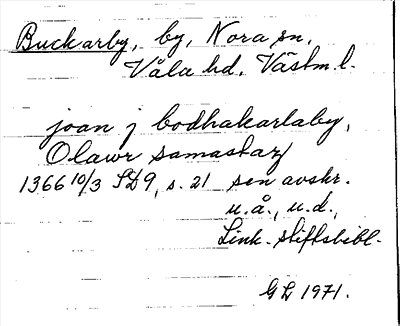 Buckarby, by, Nora sn,
Våla hd, Västm l.
joan j bodhakarlaby,
Olawr samastaz
1366 10/3 SD9, s. 21 sen avskr.
u.å., u.d.,
Link. stiftsbibl.
GL 1971.